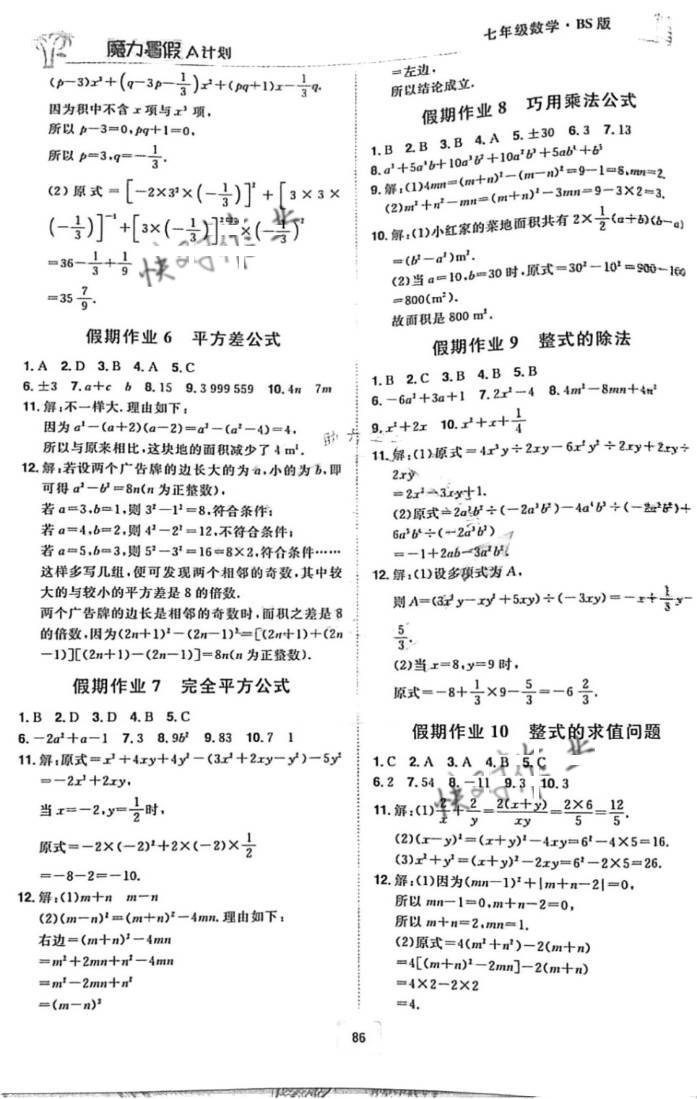 魔力暑假A计划
七年级数学·BS版
(p-3)x³+(q-3p-1/3)x²+(pq+1)x-1/3q.
因为积中不含x项与x³项,
所以p-3=0,pq+1=0,
所以p=3,q=-1/3.
(2)原式=[-2×3²×(-1/3)]²+[3×3×
(-1/3)]⁻¹+[3×(-1/3)]²⁰²⁰×(-1/3)²
=36-1/3+1/9
=35 7/9.
假期作业6 平方差公式
1.A 2.D 3.B 4.A 5.C
6.±3 7.a+c b 8.15 9.3 999 559 10.4n 7m
11.解:不一样大.理由如下:
因为a²-(a+2)(a-2)=a²-(a²-4)=4,
所以与原来相比,这块地的面积减少了4 m².
12.解:若设两个广告牌的边长大的为a,小的为b,即
可得a²-b²=8n(n为正整数),
若a=3,b=1,则3²-1²=8,符合条件;
若a=4,b=2,则4²-2²=12,不符合条件;
若a=5,b=3,则5²-3²=16=8×2,符合条件……
这样多写几组,便可发现两个相邻的奇数,其中较
大的与较小的平方差是8的倍数.
两个广告牌的边长是相邻的奇数时,面积之差是8
的倍数,因为(2n+1)²-(2n-1)²=[(2n+1)+(2n
-1)][(2n+1)-(2n-1)]=8n(n为正整数).
假期作业7 完全平方公式
1.B 2.D 3.D 4.B 5.D
6.-2a²+a-1 7.3 8.9b² 9.83 10.7 1
11.解:原式=x²+4xy+4y²-(3x²+2xy-y²)-5y²
=-2x²+2xy,
当x=-2,y=1/2时,
原式=-2×(-2)²+2×(-2)×1/2
=-8-2=-10.
12.解:(1)m+n m-n
(2)(m-n)²=(m+n)²-4mn.理由如下:
右边=(m+n)²-4mn
=m²+2mn+n²-4mn
=m²-2mn+n²
=(m-n)²
=左边,
所以结论成立.
假期作业8 巧用乘法公式
1.B 2.B 3.B 4.A 5.±30 6.3 7.13
8.a⁵+5a⁴b+10a³b²+10a²b³+5ab⁴+b⁵
9.解:(1)4mn=(m+n)²-(m-n)²=9-1=8,mn=2.
(2)m²+n²-mn=(m+n)²-3mn=9-3×2=3.
10.解:(1)小红家的菜地面积共有2×1/2(a+b)(b-a)
=(b²-a²)m².
(2)当a=10,b=30时,原式=30²-10²=900-100
=800(m²).
故面积是800 m².
假期作业9 整式的除法
1.B 2.C 3.B 4.B 5.B
6.-6a²+3a+1 7.2x²-4 8.4m²-8mn+4n²
9.x²+2x 10.x²+x+1/4
11.解:(1)原式=4x³y÷2xy-6x²y²÷2xy+2xy÷
2xy
=2x²-3xy+1.
(2)原式=2a³b²÷(-2a³b²)-4a⁴b³÷(-2a³b²)+
6a⁵b⁴÷(-2a³b²)
=-1+2ab-3a²b².
12.解:(1)设多项式为A,
则A=(3x²y-xy²+5xy)÷(-3xy)=-x+1/3y-
5/3.
(2)当x=8,y=9时,
原式=-8+1/3×9-5/3=-6 2/3.
假期作业10 整式的求值问题
1.C 2.A 3.A 4.B 5.C
6.2 7.54 8.-11 9.3 10.3
11.解:(1)2/x+2/y=2(x+y)/xy=2×6/5=12/5.
(2)(x-y)²=(x+y)²-4xy=6²-4×5=16.
(3)x²+y²=(x+y)²-2xy=6²-2×5=26.
12.解:(1)因为(mn-1)²+|m+n-2|=0,
所以mn-1=0,m+n-2=0,
所以m+n=2,mn=1.
(2)原式=4(m²+n²)-2(m+n)
=4[(m+n)²-2mn]-2(m+n)
=4×2-2×2
=4.
86